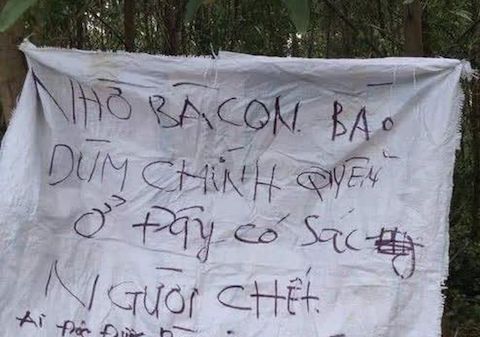 NHỜ BÀ CON BÁO
DÙM CHÍNH QUYỀN
Ở ĐÂY CÓ XÁC
NGƯỜI CHẾT.
Ai Đọc Được